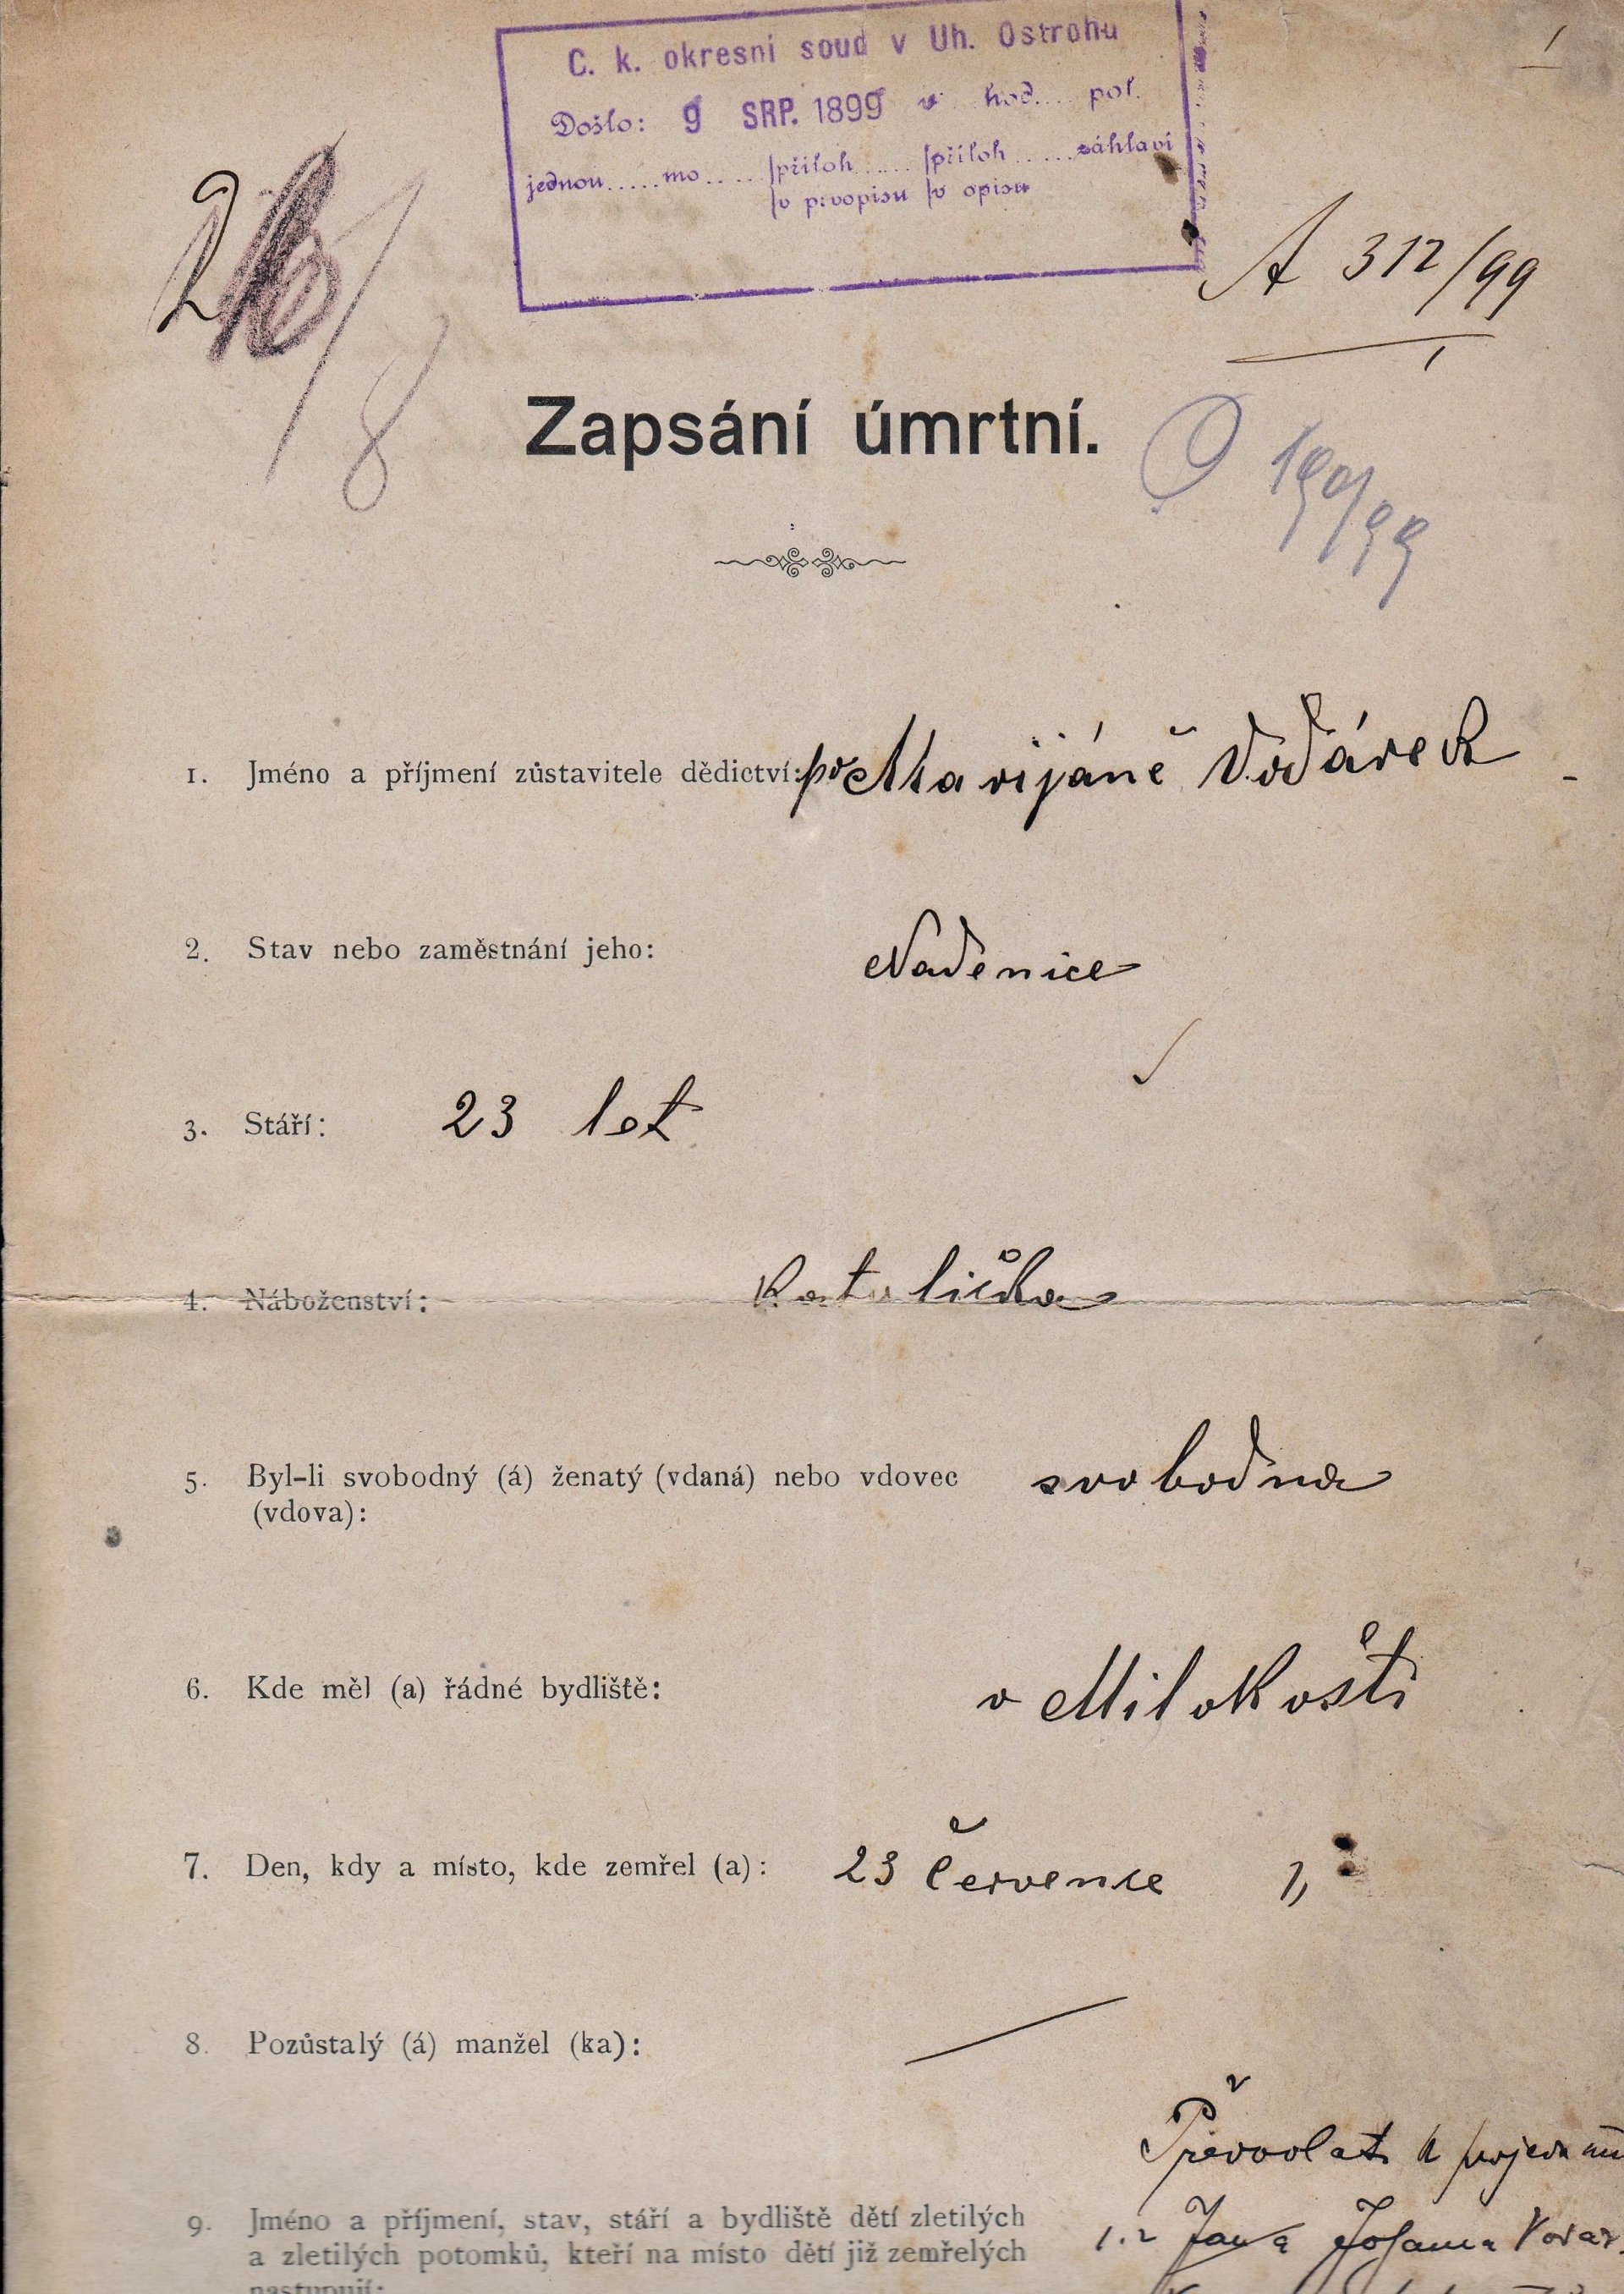 C. k. okresní soud v Uh. Ostrohu
Došlo: 9 SRP. 1899 v hod. poł.
jednou ..... mo ..... příloh ..... příloh ..... záhlaví
v prvopisu v opisu
1
A 312/99
1
8
Zapsání úmrtní.
190/99
1. Jméno a příjmení zůstavitele dědictví: po Marijáně Vodárek
2. Stav nebo zaměstnání jeho: Nadenice
3. Stáří: 23 let
4. Náboženství: Katolička
5. Byl-li svobodný (á) ženatý (vdaná) nebo vdovec svobodna
(vdova):
6. Kde měl (a) řádné bydliště: v Milokošti
7. Den, kdy a místo, kde zemřel (a): 23 července
8. Pozůstalý (á) manžel (ka):
Předvolati k projednání
9. Jméno a příjmení, stav, stáří a bydliště dětí zletilých
1.2 Jana
a zletilých potomků, kteří na místo dětí již zemřelých
nastupují: